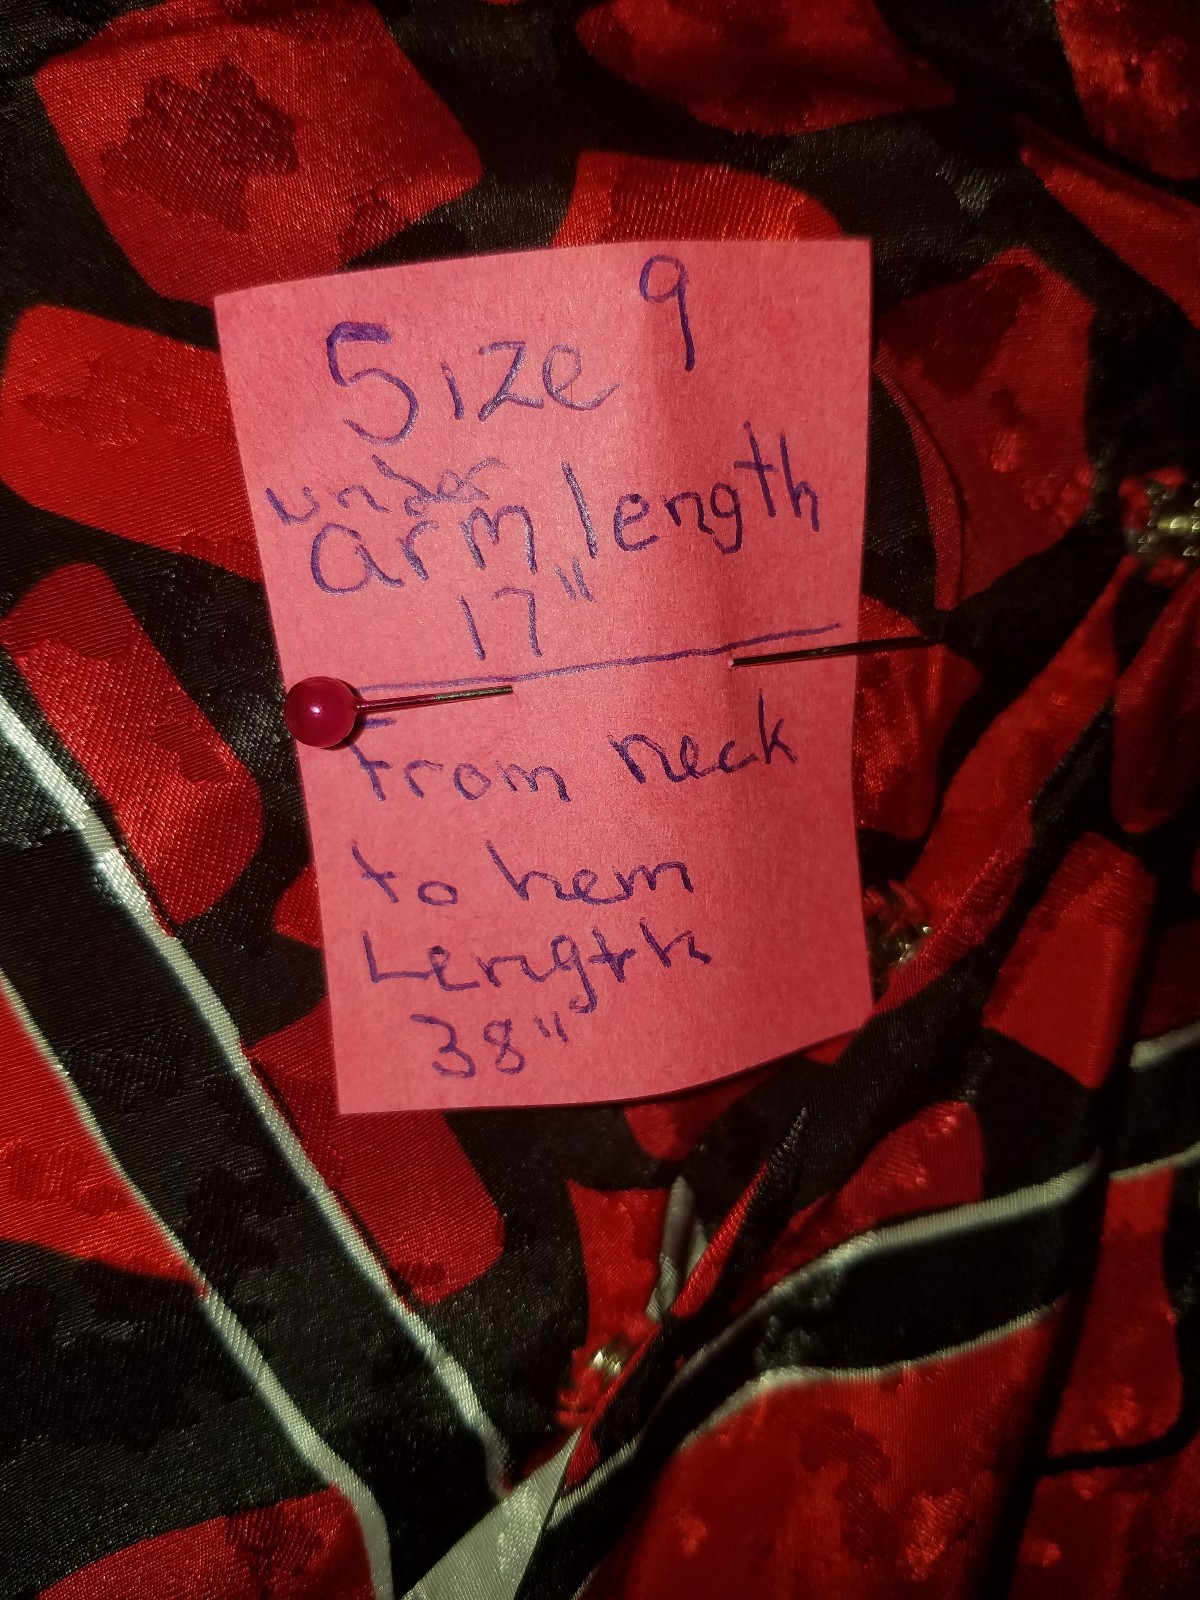 Size 9
under
arm length
17"
From neck
to hem
Length
38"